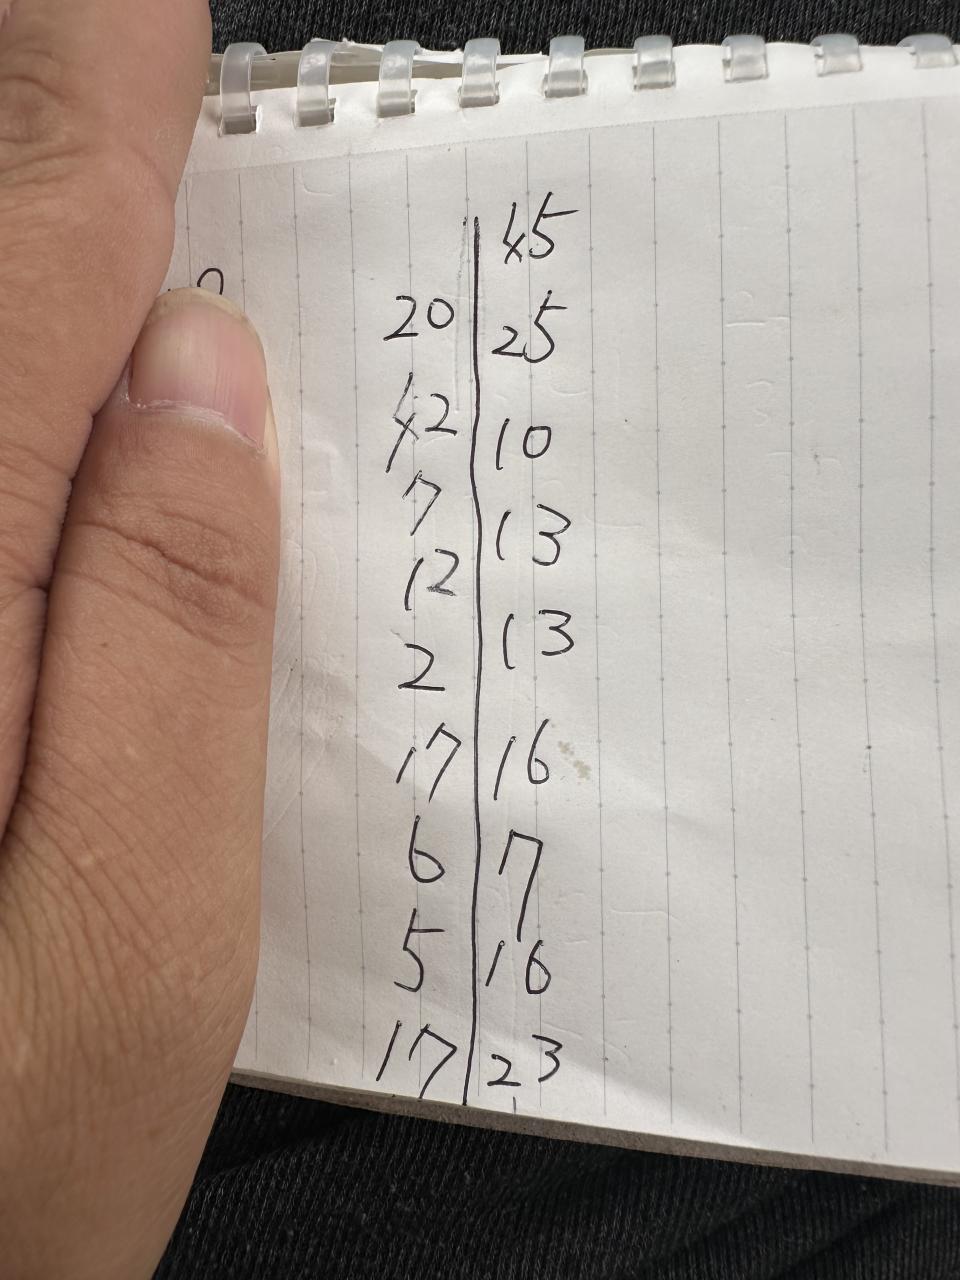 45
20 25
42 10
7 13
12 13
2
17 16
6 7
5 16
17 23